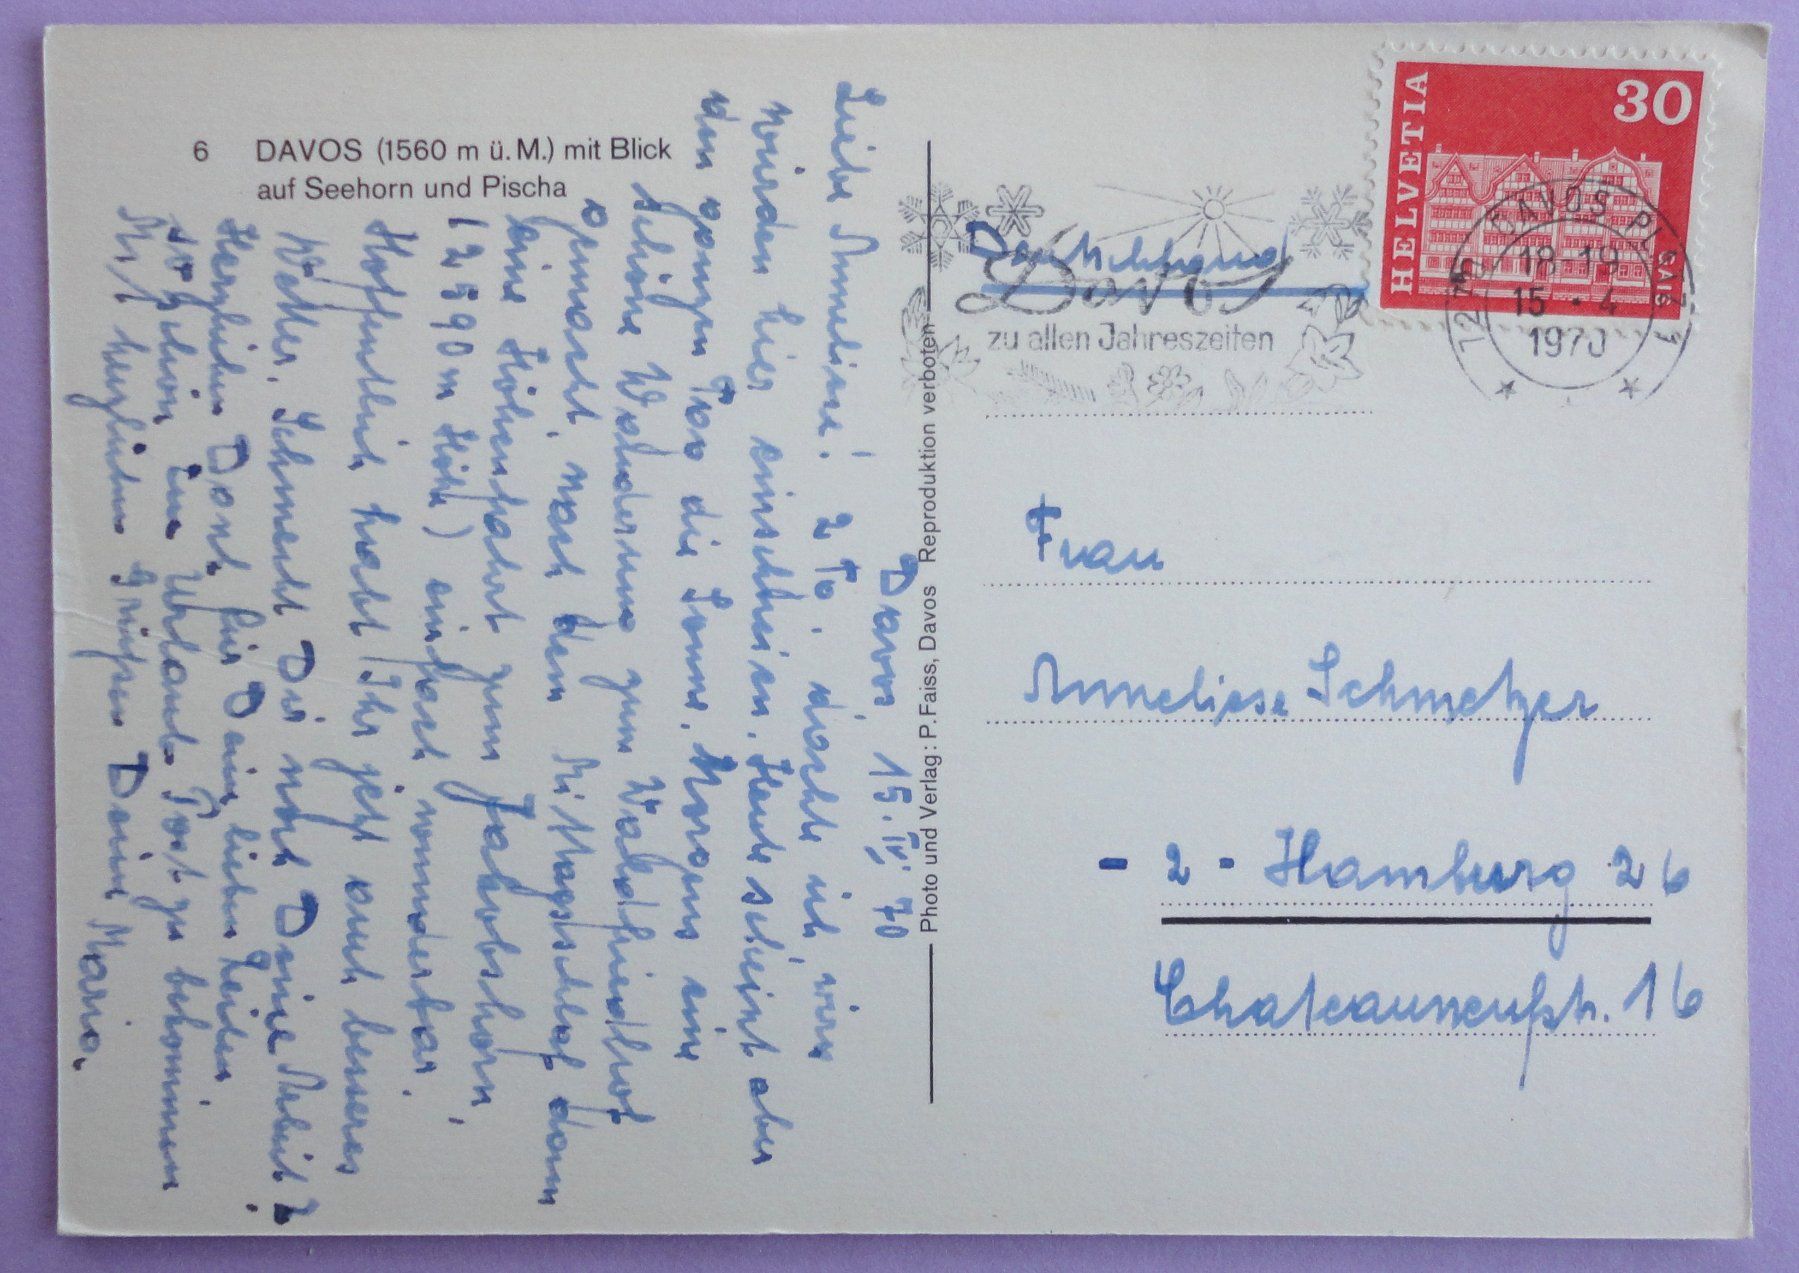 6 DAVOS (1560 m ü. M.) mit Blick
auf Seehorn und Pischa
Davos, 15. IV. 70
Liebe Anneliese! 2 To. dachte ich, wir
würden hier einschneien. Heute scheint aber
den ganzen Tag die Sonne. Morgens eine
schöne Wanderung zum Waldfriedhof
gemacht, nach dem Mittagsschlaf dann
eine Höhenfahrt zum Jakobshorn,
(2590 m Höhe) einfach wunderbar.
Hoffentlich habt Ihr jetzt auch besseres
Wetter. Schmeckt Dir noch Deine Arbeit?
Herzlichen Dank für Deine lieben Zeilen.
so schön im Urlaub Post zu bekommen
Mit herzlichen Grüßen Deine Maria.
Photo und Verlag: P. Faiss, Davos Reproduktion verboten
HELVETIA
30
GAIS
7270 DAVOS PLATZ 1
18-19
15.-4
1970
Davos
zu allen Jahreszeiten
Deutschland
Frau
Anneliese Schmetzer
- 2 - Hamburg 26
Chateauneufstr. 16